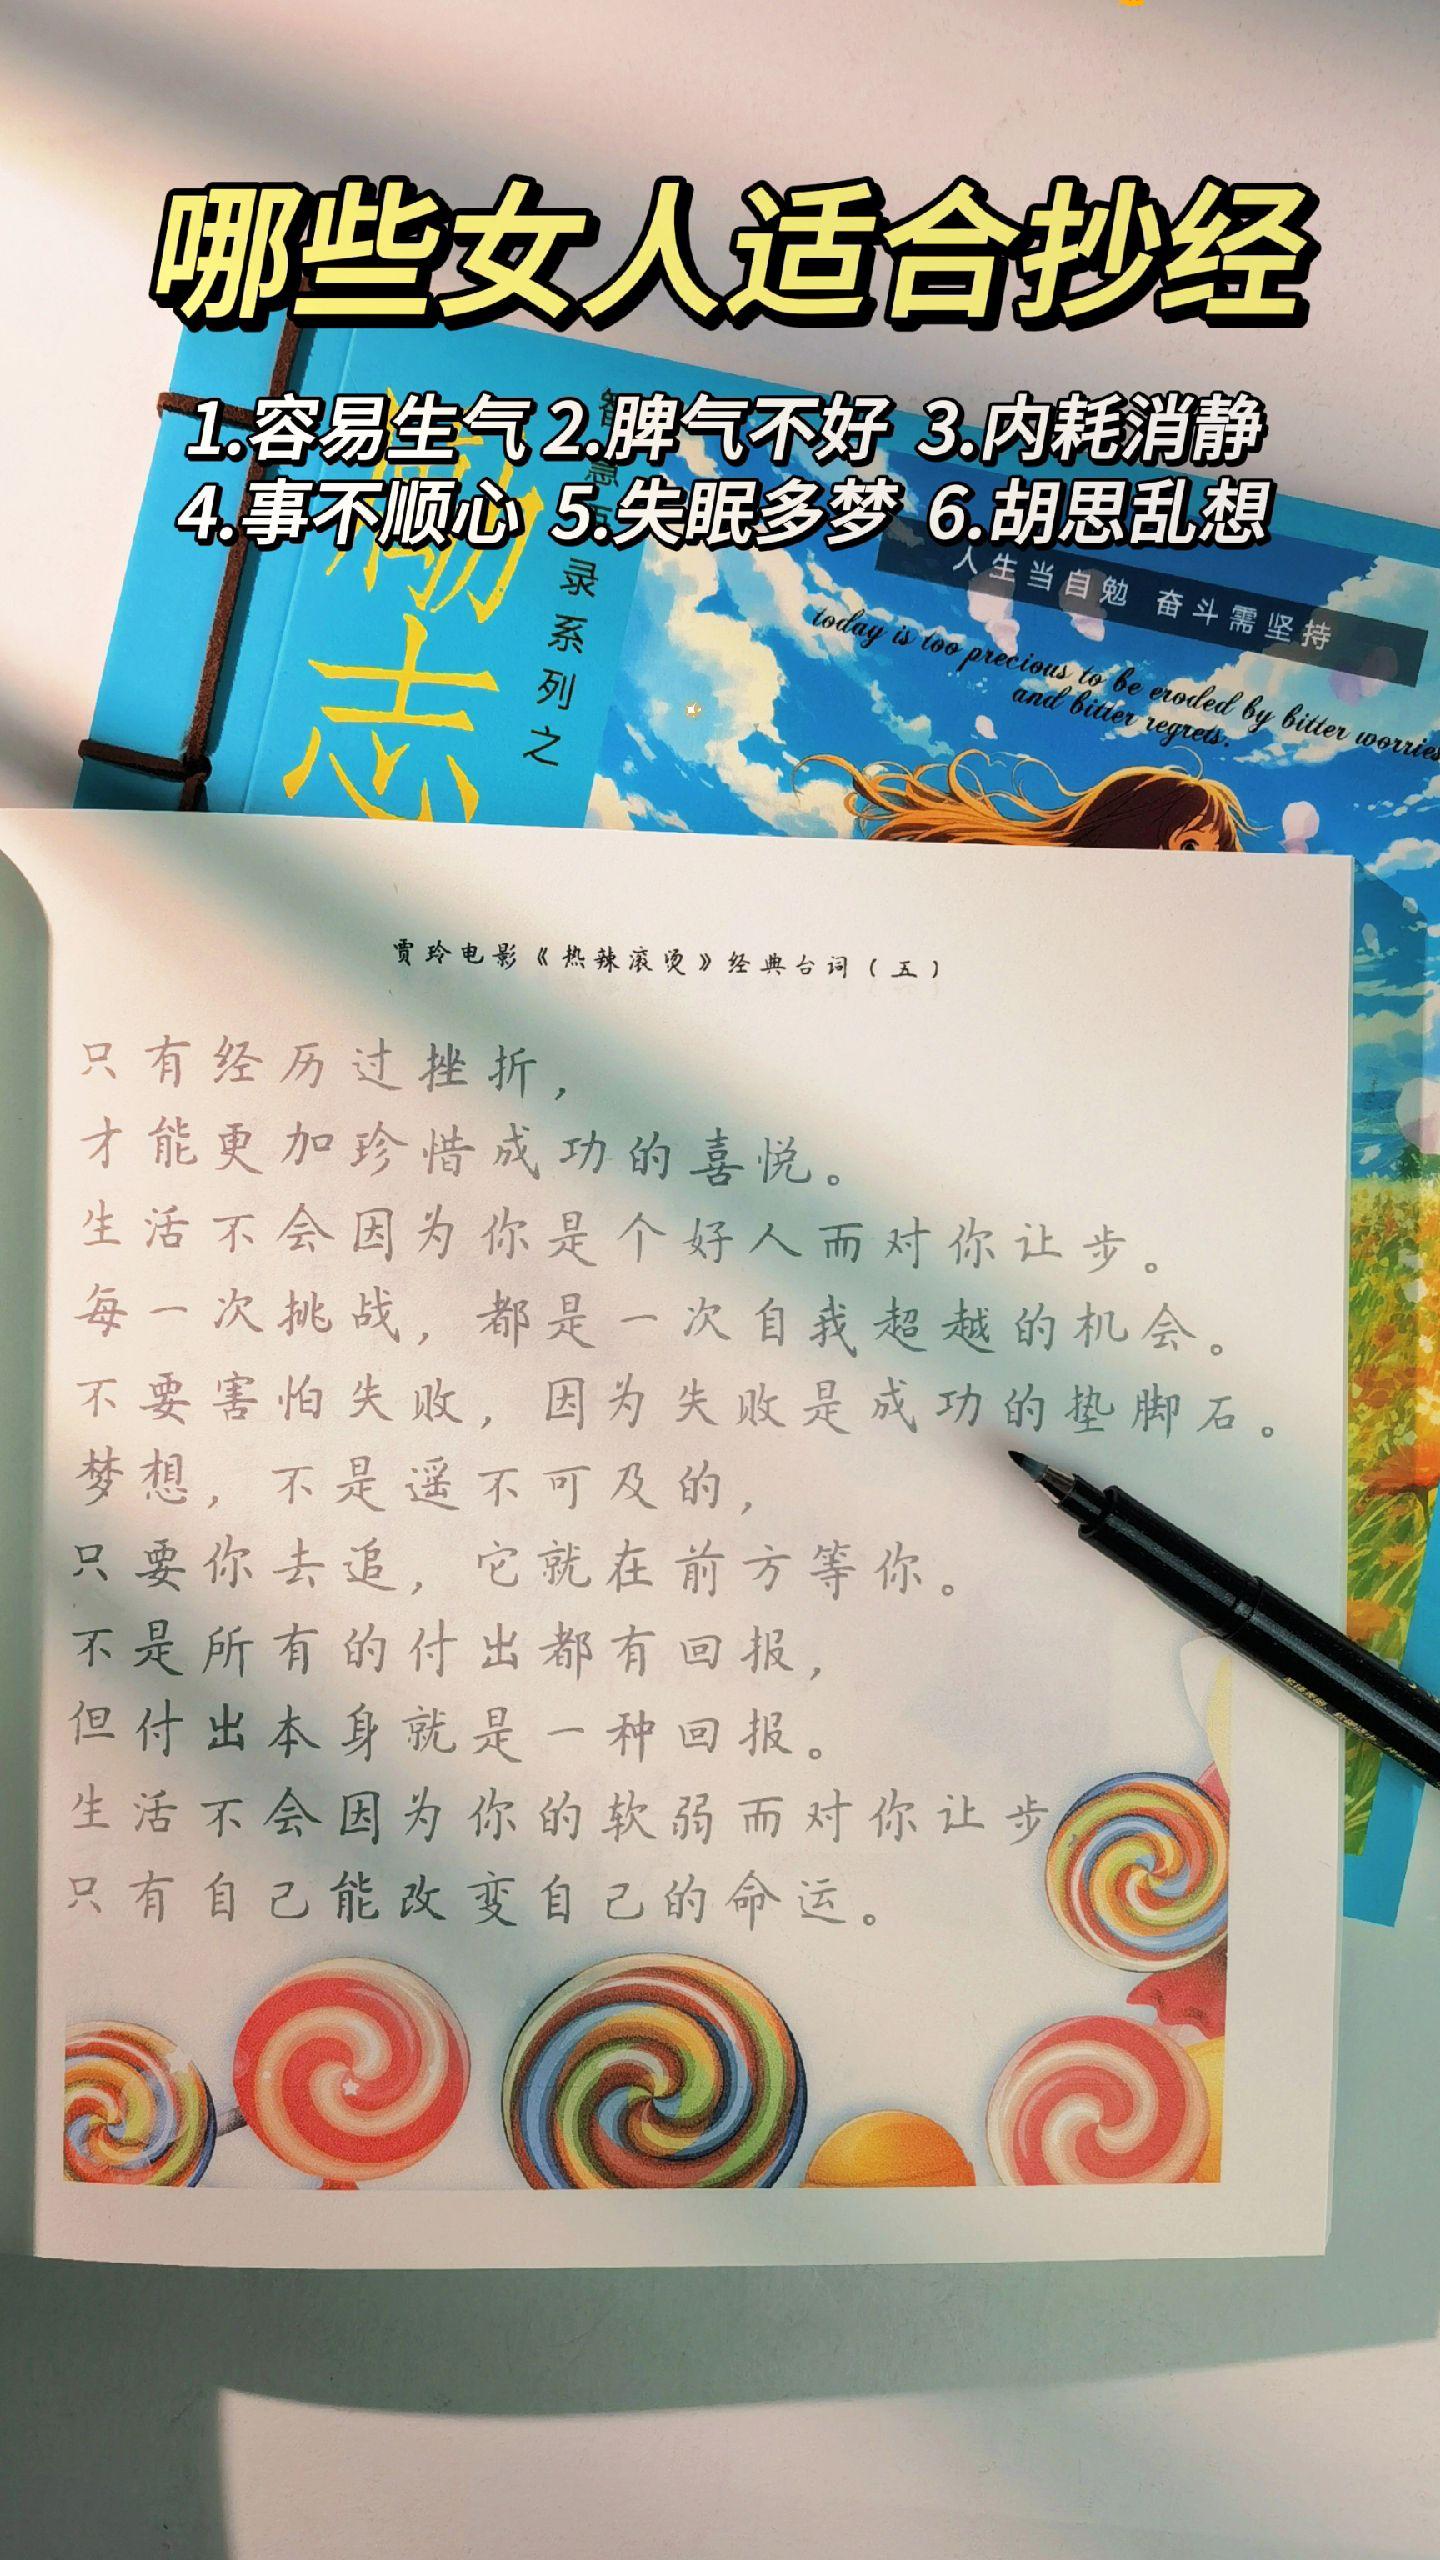 哪些女人适合抄经
1.容易生气 2.脾气不好 3.内耗消静
4.事不顺心 5.失眠多梦 6.胡思乱想
励志
录系列之
人生当自勉 奋斗需坚持
today is too precious to be eroded by bitter worries
and bitter regrets.
贾玲电影《热辣滚烫》经典台词（五）
只有经历过挫折，
才能更加珍惜成功的喜悦。
生活不会因为你是个好人而对你让步。
每一次挑战，都是一次自我超越的机会。
不要害怕失败，因为失败是成功的垫脚石。
梦想，不是遥不可及的，
只要你去追，它就在前方等你。
不是所有的付出都有回报，
但付出本身就是一种回报。
生活不会因为你的软弱而对你让步
只有自己能改变自己的命运。